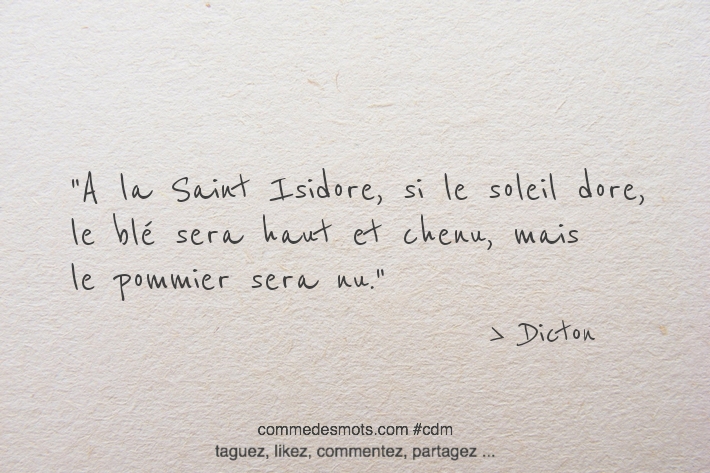 "A la Saint Isidore, si le soleil dore,
le blé sera haut et chenu, mais
le pommier sera nu."
> Dicton
commedesmots.com #cdm
taguez, likez, commentez, partagez ...